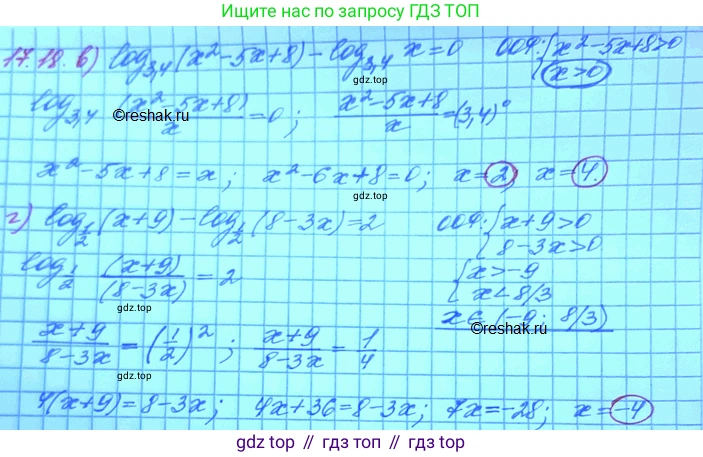 Ищите нас по запросу ГДЗ ТОП
17.18. в) log₃,₄(x²-5x+8) - log₃,₄ x = 0 ООФ: { x²-5x+8>0
x>0
gdz.top
log₃,₄ (x²-5x+8)/x = 0; (x²-5x+8)/x = (3,4)⁰
©reshak.ru ©reshak.ru
gdz.top
x²-5x+8=x; x²-6x+8=0; x=2, x=4.
gdz.top
г) log½(x+9) - log½(8-3x)=2 ООФ: { x+9>0
8-3x>0
log½ (x+9)/(8-3x) = 2 { x>-9
x<8/3
gdz.top
x∈(-9; 8/3)
©reshak.ru
(x+9)/(8-3x) = (1/2)²; (x+9)/(8-3x) = 1/4
gdz.top
4(x+9)=8-3x; 4x+36=8-3x; 7x=-28; x=-4
gdz top // гдз топ // gdz.top